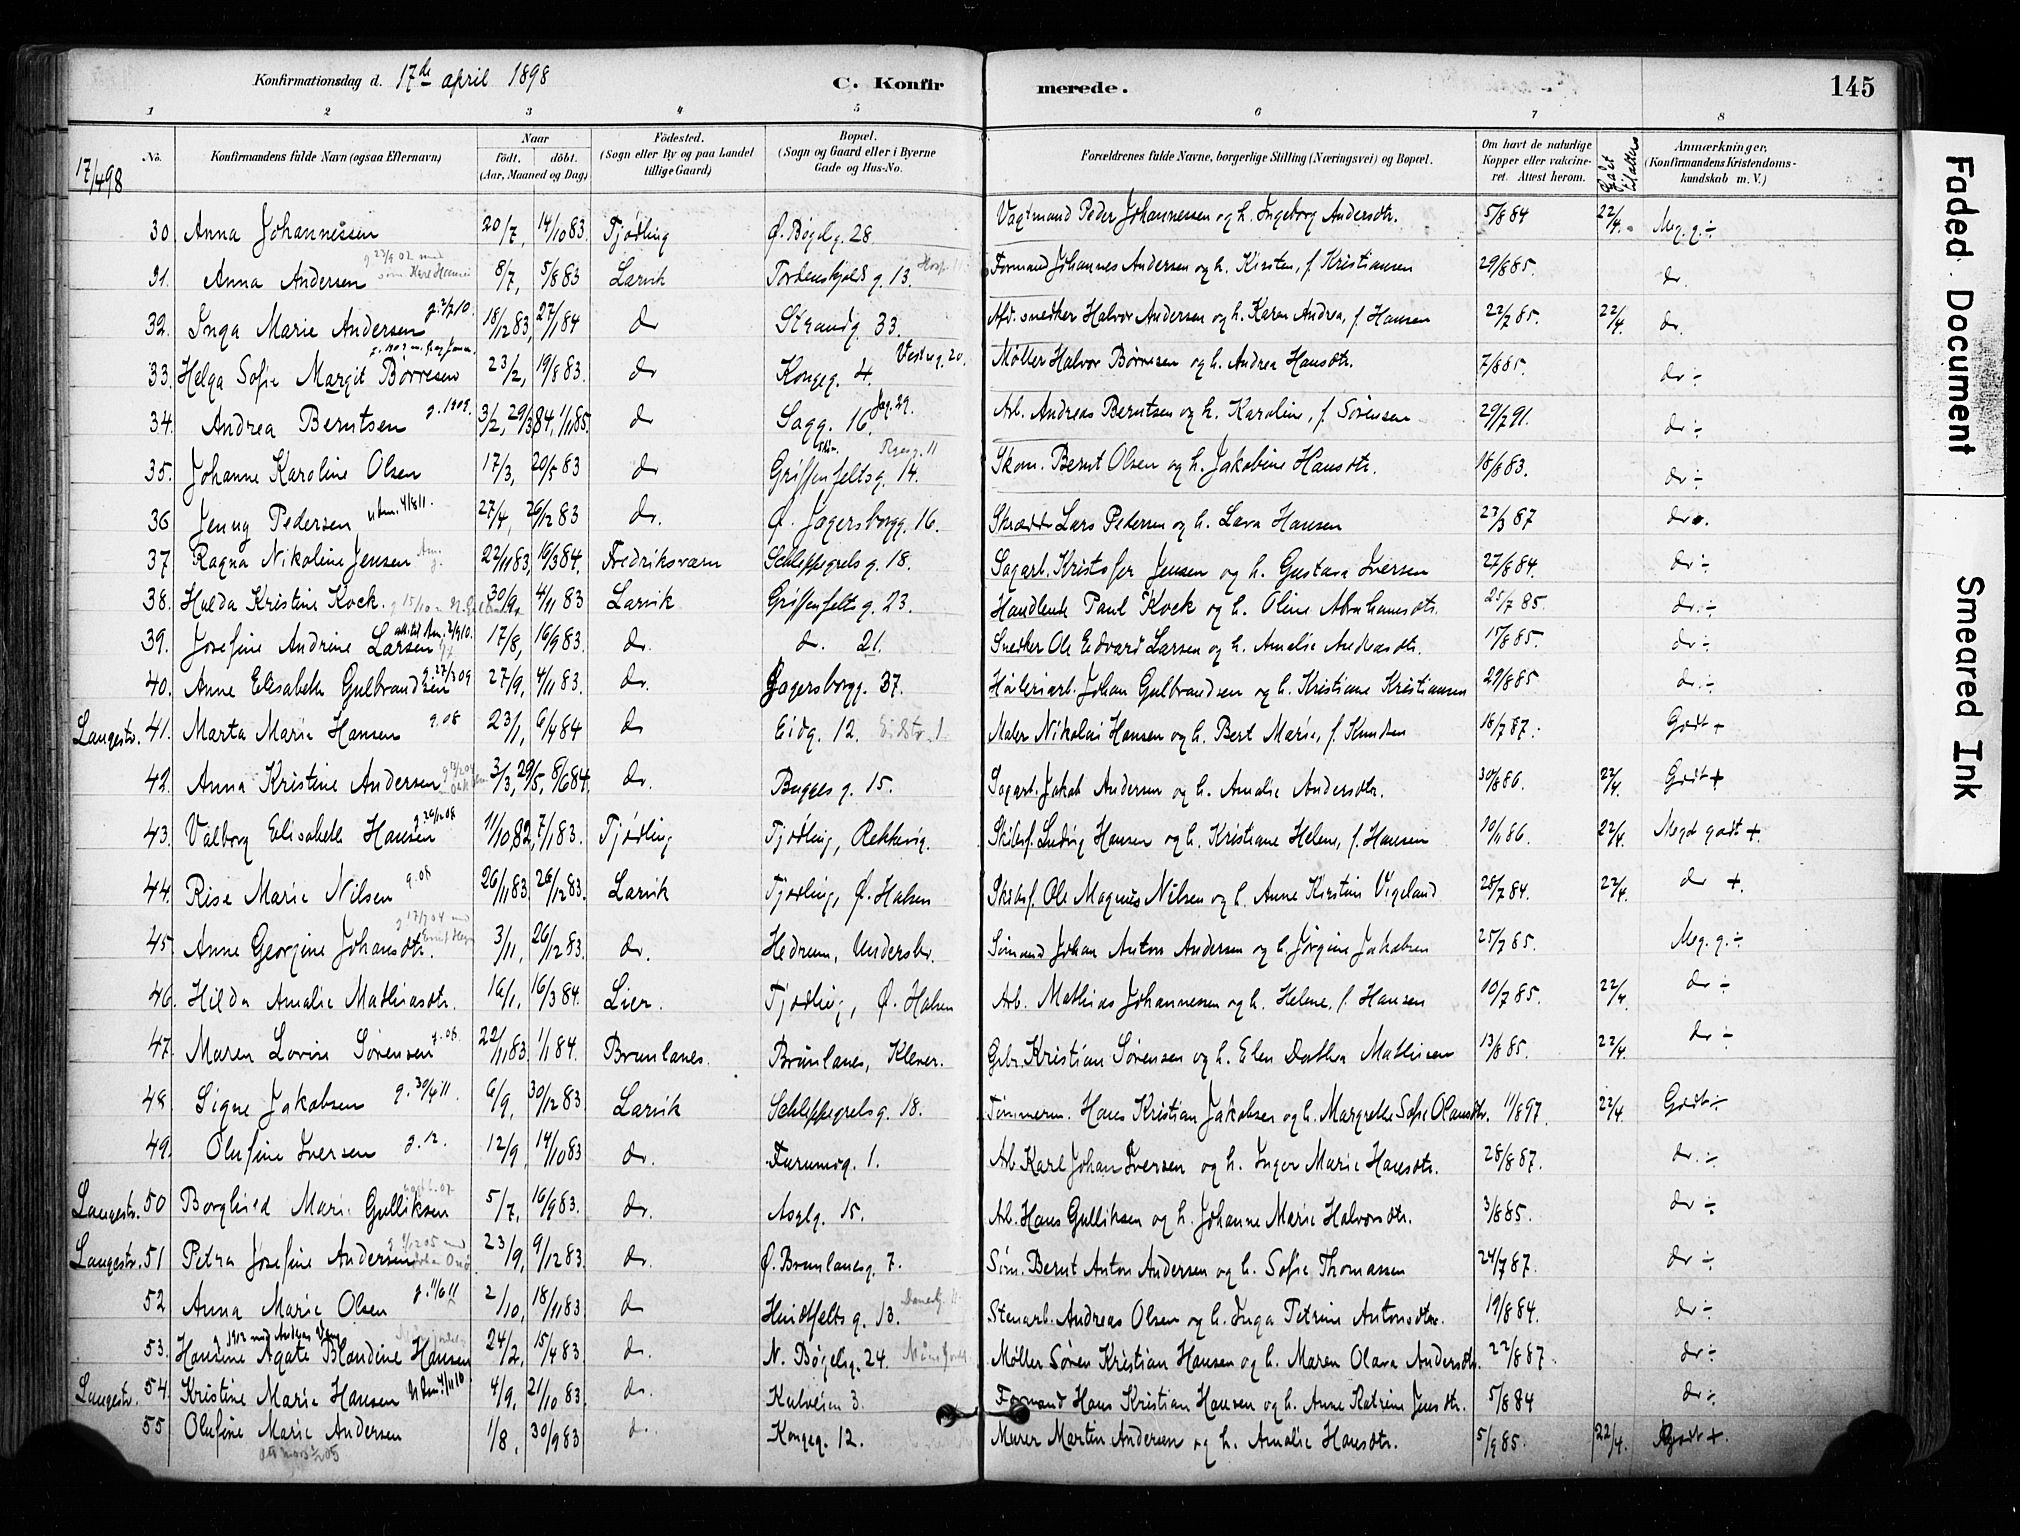 Konfirmationsdag d. 17de april 1898 C. Konfir merede. 145
1 2 3 4 5 6 7 8
No. Konfirmandens fulde Navn (ogsaa Efternavn) Naar födt. döbt. (Aar, Maaned og Dag) Födested. (Sogn eller By og paa Landet tillige Gaard) Bopæl. (Sogn og Gaard eller i Byerne Gade og Hus-No. Forældrenes fulde Navne, borgerlige Stilling (Næringsvei) og Bopæl. Om havt de naturlige Kopper eller vakcineret. Attest herom. Anmærkninger. (Konfirmandens Kristendomskundskab m. V.)
17/4 98
30 Anna Johannessen 20/7, 14/10 83. Tjødling Ø. Bøgelg. 28 Vagtmand Peder Johannessen og h. Ingeborg Andersdtr. 5/8 84 22/4. Meg. g. ÷
31. Anna Andersen 8/7, 5/8 83 Larvik Tordenskjolds g. 13. Formand Johannes Andersen og h. Kirsten, f. Kristiansen 29/8 85. dr.
32. Inga Marie Andersen g. 2/7 10. 18/12 83, 27/1 84 dr Strandg. 33. Afd. snedker Halvor Andersen og h. Karen Andrea, f. Hansen 22/7 85. 22/4. dr.
33. Helga Sofie Margit Børresen 23/2, 19/8 83. dr Kongeg. 4. Vestreg. 20. Møller Halvor Børresen og h. Andrea Hansdtr. 7/8 85. dr ÷
34. Andrea Berntsen g. 1909. 3/2, 29/3 84, 1/1 85. dr Sagg. 16. Jeg. 29. Arb. Andreas Berntsen og h. Karoline, f. Sørensen 29/7 91. dr ÷
35. Johanne Karoline Olsen 17/3, 20/5 83 dr Griffenfeltsg. 14. Skom. Bernt Olsen og h. Jakobine Hansdtr. 18/8 83. dr ÷
36 Jenny Pedersen 4/8 11. 27/4, 26/12 83 dr. Ø. Jagersborgg. 16. Skrædder Lars Pedersen og h. Lava Hansen 23/3 87 dr.
37 Ragna Nikoline Jensen 22/11 83, 16/3 84. Fredriksværn Schleppegrels g. 18. Sagarb. Kristofer Jensen og h. Gustava Iversen 27/8 84. dr ÷
38. Hulda Kristine Kock. 30/9, 4/11 83 Larvik Griffenfelts g. 23. Handlende Paul Kock og h. Oline Abrahamsdtr. 25/7 85. dr. ÷
39. Josefine Andrine Larsen 17/8, 16/9 83. dr. d. 21. Snedker Ole Edvard Larsen og h. Amalie Andreasdtr. 15/8 85. dr ÷
40. Anne Elisabeth Gulbrandsen g. 27/3 09 27/9, 4/11 83. dr. Jagersborgg. 37. Høvleriarb. Johan Gulbrandsen og h. Kristiane Kristiansen 29/8 85 d. ÷
Langestr. 41. Marta Marie Hansen g. 08 23/1, 6/4 84 dr Eidg. 12. Maler Nikolai Hansen og h. Bert Marie, f. Knudsen 18/7 87. Godt +
42. Anna Kristine Andersen 3/3, 29/5, 8/6 84. dr. Bugges g. 15. Sagarb. Jakob Andersen og h. Amalie Andersdtr. 30/8 86. 22/4. Godt +
43. Valborg Elisabeth Hansen g 26/12 08 11/10 82, 7/1 83. Tjødling Tjødling, Rekkevig. Skibsf. Ludvig Hansen og h. Kristiane Helene, f. Hansen 10/1 86. 22/4. Megt godt +.
44. Rise Marie Nilsen g. 08 26/11 83. 26/12 83. Larvik Tjødling, Ø. Halsen Skibsf. Ole Magnus Nilsen og h. Anne Kirstine Vigeland 28/7 84. 22/4. dr +.
45. Anne Georgine Johansdtr. 3/11, 26/12 83. dr. Hedrum, Undersbo. Sømand Johan Anton Andersen og h. Jørgine Jakobsen 25/7 85. Meg. g. ÷
46. Hilda Amalie Mathiasdtr. 16/1, 16/3 84. Lier. Tjødling, Ø. Halsen Arb. Mathias Johannessen og h. Helene, f. Hansen 10/7 85. 22/4. dr ÷
47. Maren Lovise Sørensen g. 08. 22/11 83. 1/1 84. Brunlanes. Brunlanes, Klever. Gbr. Kristian Sørensen og h. Elen Dorthea Mathisen 13/8 85. 22/4. dr ÷
48. Signe Jakobsen g. 30/4 11. 6/9, 30/12 83 Larvik Schleppegrels g. 18. Tømmerm. Hans Kristian Jakobsen og h. Margrethe Sofie Olausdtr. 11/8 97. 22/4 Godt ÷
49. Olufine Iversen g. 12. 12/9, 14/10 83 dr. Furumog. 1. Arb. Karl Johan Iversen og h. Inger Marie Hansdtr. 28/8 87. dr. ÷
Langestr. 50 Borghild Marie Gulliksen 5/7, 16/9 83. dr. Asylg. 15. Arb. Hans Gulliksen og h. Johanne Marie Halvorsdtr. 3/8 85. dr ÷
Langestr. 51 Petra Josefine Andersen 23/9, 9/12 83. dr. Ø. Brunlanesg. 7. Søm. Bernt Anton Andersen og h. Sofie Thomassen 24/7 87. dr ÷
52 Anna Marie Olsen g. 11/6 11 2/10, 18/11 83. d Huidtfelts g. 13. Stenarb. Andreas Olsen og h. Inga Petrine Antonsdtr. 19/8 84. dr ÷
53. Hansine Agate Blandine Hansen 24/2, 15/4 83 dr. N. Bøgelsg. 24. Møller Søren Kristian Hansen og h. Maren Olava Andersdtr. 22/8 87. dr ÷
Langestr. 54. Kristine Marie Hansen 4/9, 21/10 83. dr. Kulveien 3. Formand Hans Kristian Hansen og h. Anne Katrine Jensdtr. 5/8 84 dr ÷
55 Olufine Marie Andersen 1/8, 30/9 83 d. Kongeg. 12. Murer Martin Andersen og h. Amalie Hansdtr. 5/9 85. 22/4. Godt +.
Faded Document
Smeared Ink